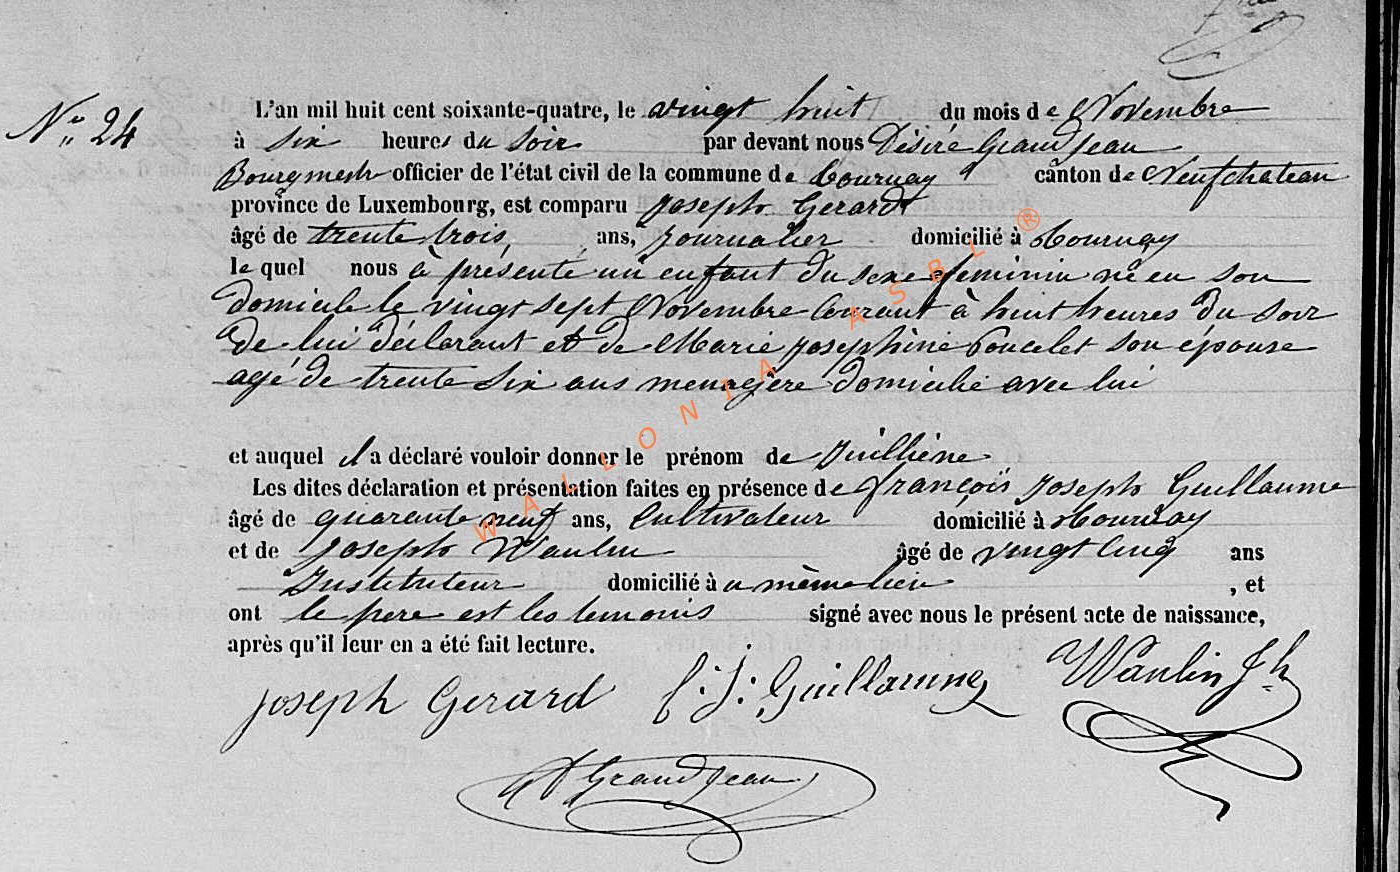 N° 24
L'an mil huit cent soixante-quatre, le vingt huit du mois de Novembre
à six heures du soir par devant nous Désiré Grandjean
Bourgmestre officier de l'état civil de la commune de Tournay canton de Neufchateau
province de Luxembourg, est comparu Joseph Gerard
âgé de trente trois, ans, journalier domicilié à Tournay
le quel nous à présenté un enfant du sexe feminin né en son
domicile le vingt sept Novembre courant à huit heures du soir
de lui déclarant et de Marie Josephine Poncelet son épouse
agé de trente six ans menagère domicilié avec lui
et auquel il a déclaré vouloir donner le prénom de Juilliène
Les dites déclaration et présentation faites en présence de françois Joseph Guillaume
âgé de quarante neuf ans, Cultivateur domicilié à Tournay
et de Joseph Waulin âgé de vingt cinq ans
Instituteur domicilié à u même lieu , et
ont le pere est les temoins signé avec nous le présent acte de naissance,
après qu'il leur en a été fait lecture.
Joseph Gerard f. J. Guillaume Waulin Jh
D Grandjean
WALLONIA ASBL ®